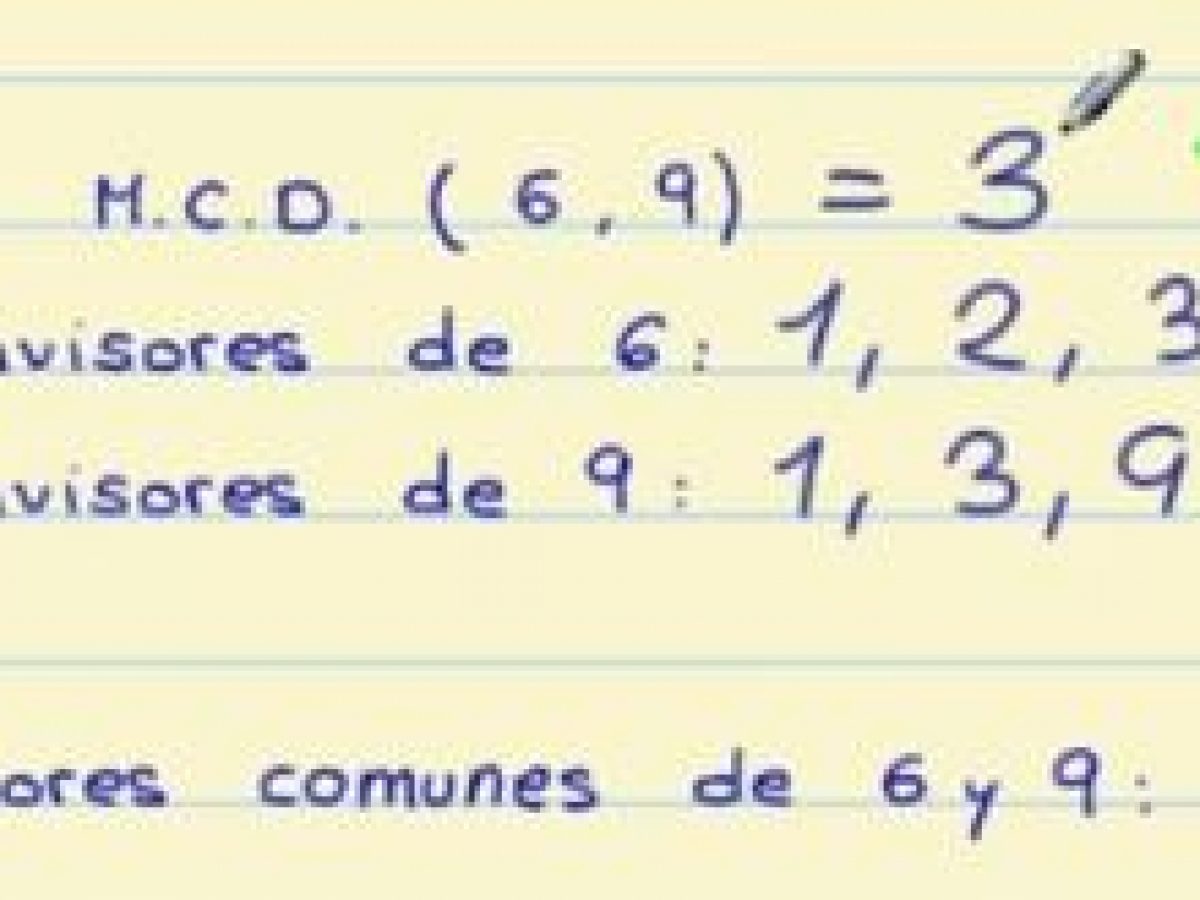 M.C.D. ( 6 , 9 ) = 3
visores de 6 : 1 , 2 , 3
visores de 9 : 1 , 3 , 9
ores comunes de 6 y 9 :